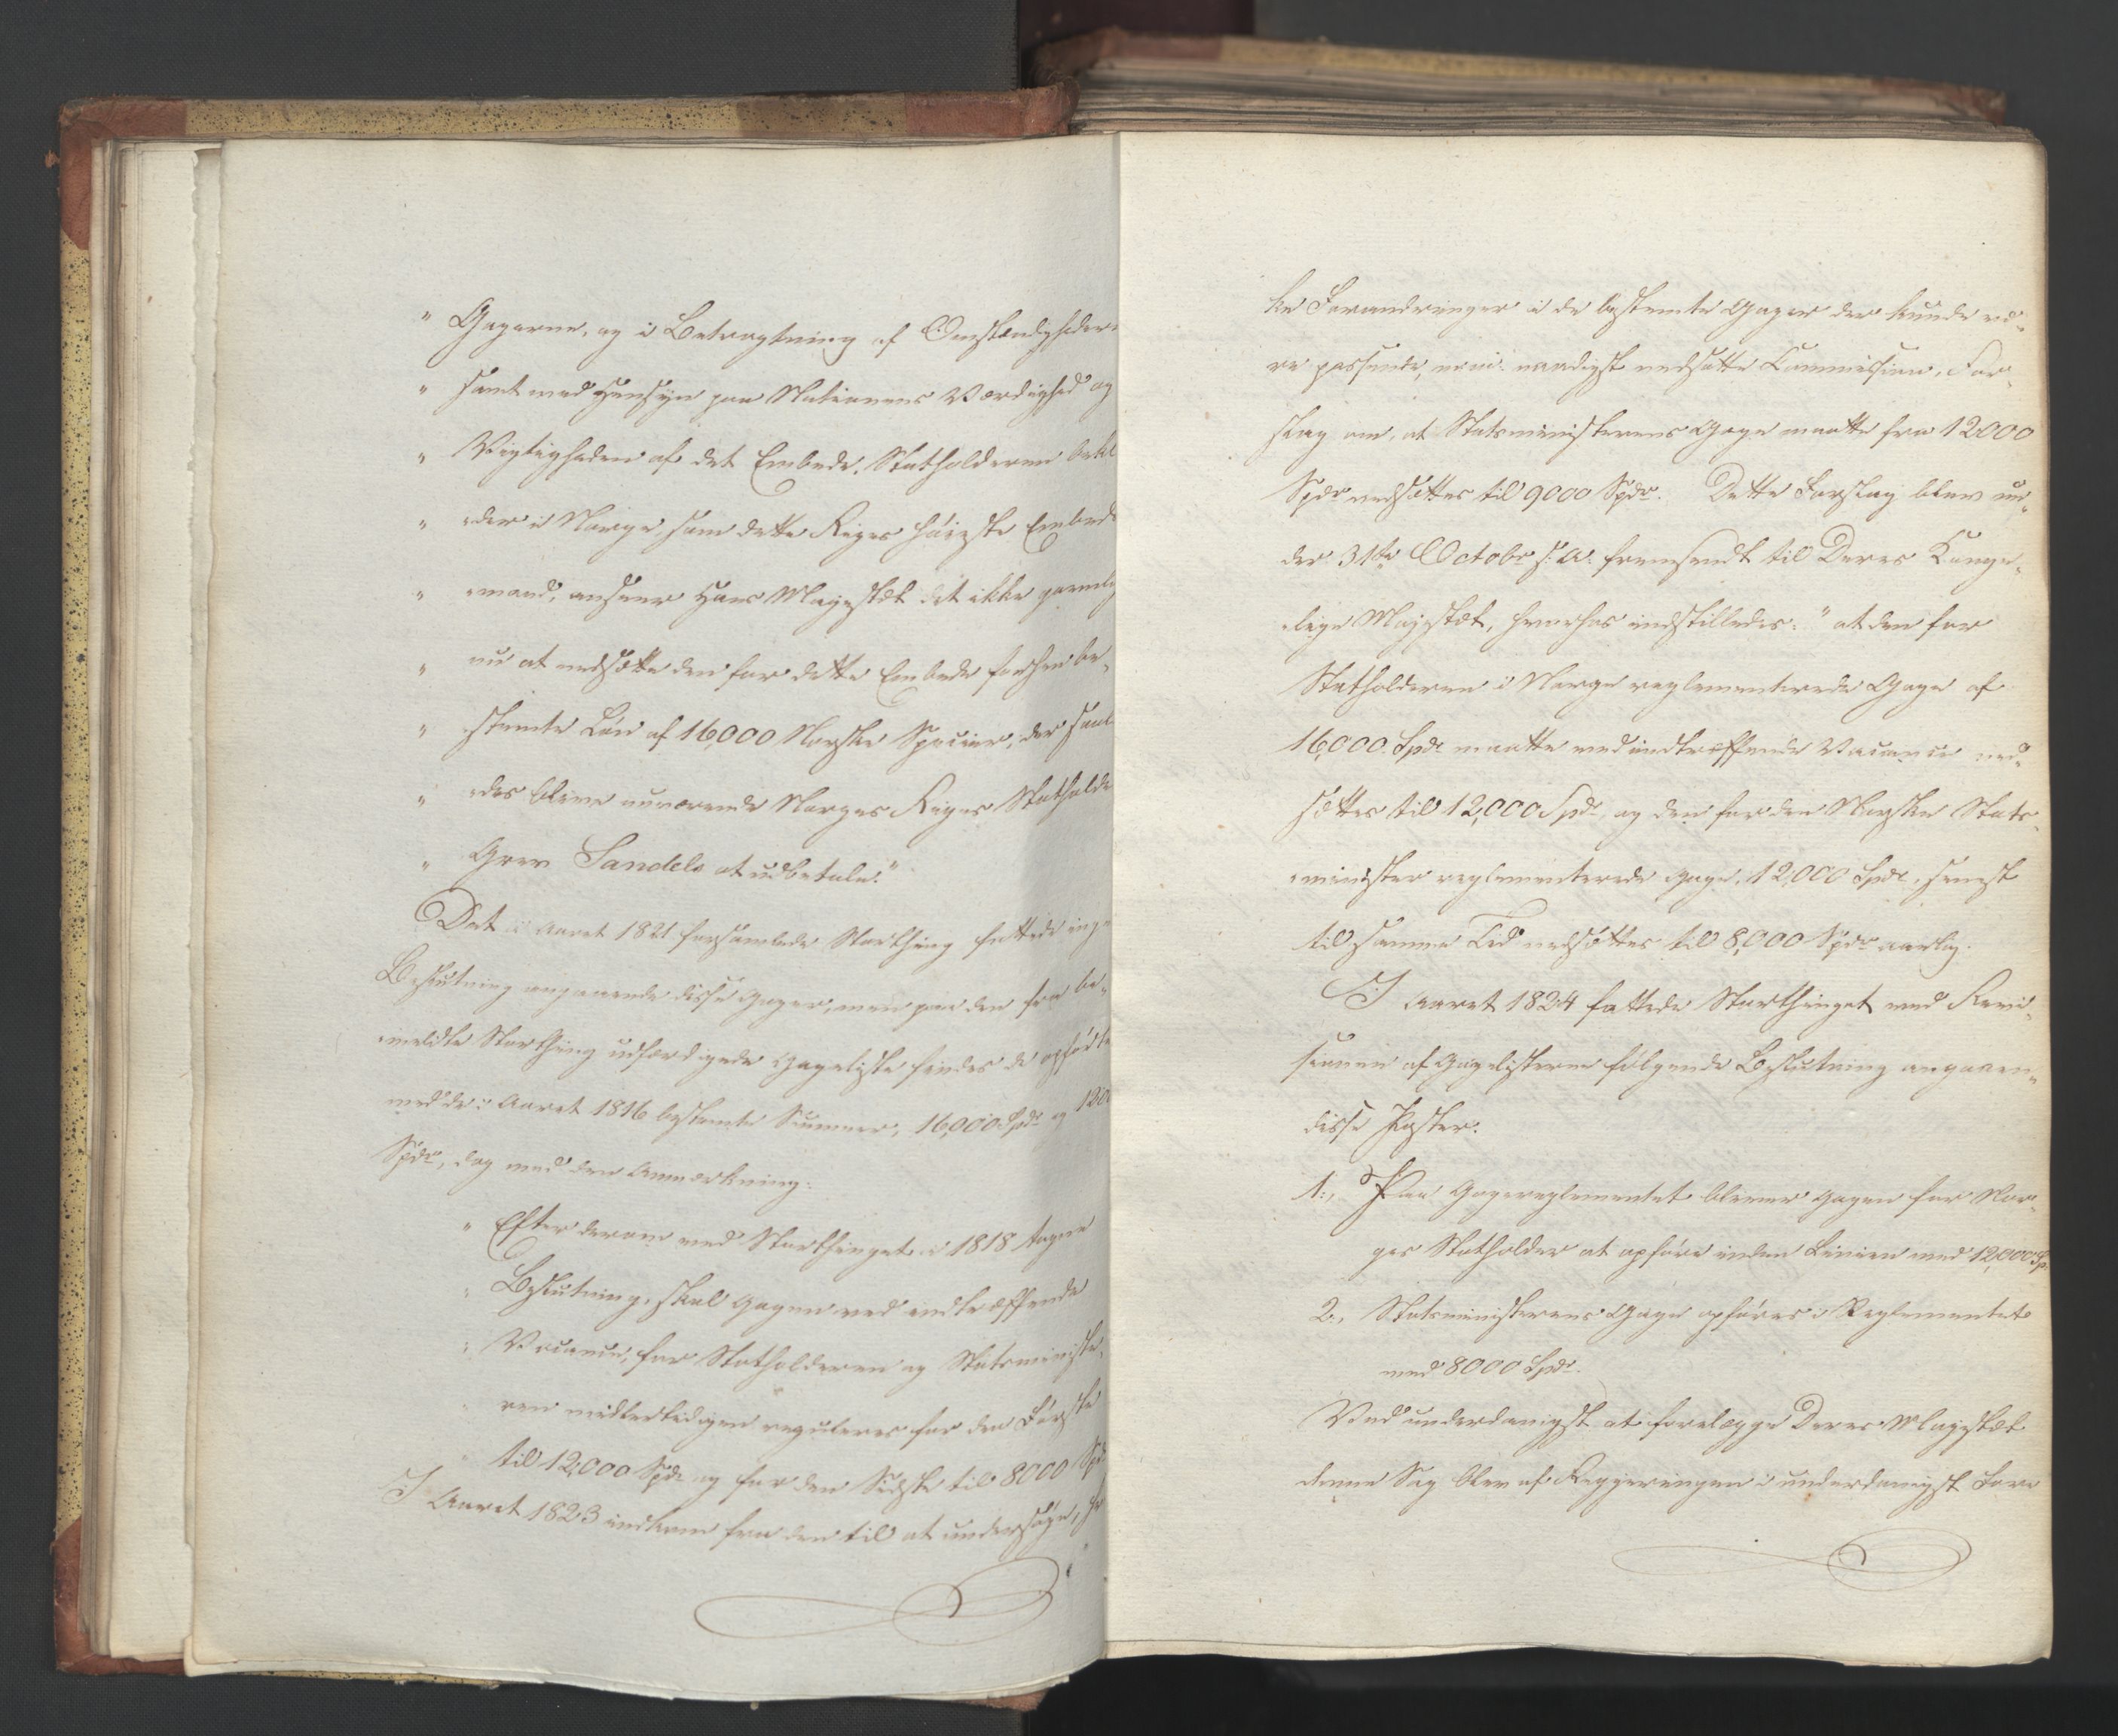 " Gagerne, og i Betragtning af Omstændigheder
" samt med Hensyn paa Nationens Værdighed og
" Vigtigheden af det Embede, Statholderen bekl
" „der i Norge, som dette Riges høieste Embeds
" „mand, anseer Hans Majestæt det ikke gavnlig
" nu at nedsætte den for dette Embede forhen be„
" „stemte Løn af 16,000 Norske Specier, der saal
" „des bliver nuværende Norges Riges Statholde
" Grev Sandels at udbetale."
Det i Aaret 1821 forsamlede Storthing fattede inge
Beslutning angaaende disse Gager, men paa den fra be„
„meldte Storthing udfærdigede Gageliste findes de opførte
med de i Aaret 1816 bestemte Summer, 16,000 Spdr og 1200
Spdr, dog med den Anmærkning:
" Efter derom ved Storthinget i 1818 tagne
" Beslutning, skal Gagen ved indtræffende
" Vacance, for Statholderen og Statsministe„
" ren midlertidigen reguleres for den Første
" til 12,000 Spdr og for den Sidste til 8000 Spdr
I Aaret 1823 indkom fra den til at undersøge, hv
ke Forandringer i de bestemte Gager der kunde væ„
re passende, naadigst nedsatte Commission, For„
slag om, at Statsministerens Gage maatte fra 12000
Spdr nedsættes til 9000 Spdr. Dette Forslag blev un„
der 31te Octobr s: A: fremsendt til Deres Konge„
„lige Majestæt, hvorhos indstilledes: " at den for
Statholderen i Norge reglementerede Gage af
16,000 Spdr maatte ved indtræffende Vacance ned„
sættes til 12,000 Spdr, og den for den Norske Stats„
„minister reglementerede Gage, 12,000 Spdr, senest
til samme Tid nedsættes til 8,000 Spdr aarlig.
I Aaret 1824 fattede Storthinget ved Revi„
sionen af Gagelisterne følgende Beslutning angaaen„
disse Poster:
1., Paa Gagereglementet bliver Gagen for Nor„
ges Statholder at opføre inden Linien med 12,000 Sp.
2., Statsministerens Gage opføres i Reglementet
med 8000 Spdr.
Ved underdanigst at forelægge Deres Majestæt
denne Sag blev af Regjeringen i underdanigst Fore